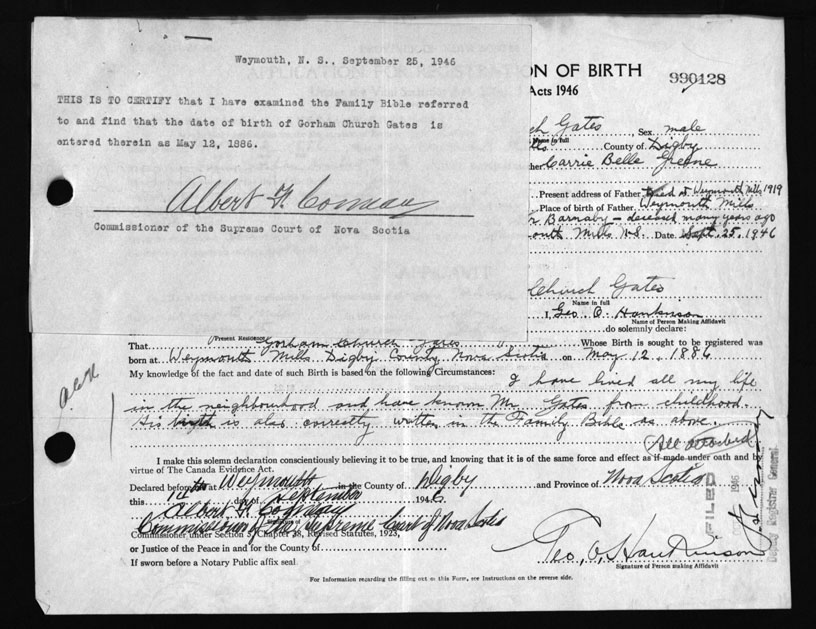 Weymouth, N. S., September 25, 1946
THIS IS TO CERTIFY that I have examined the Family Bible referred
to and find that the date of birth of Gorham Church Gates is
entered therein as May 12, 1886.
Albert
Commissioner of the Supreme Court of Nova Scotia
ON OF BIRTH
990128
Acts 1946
ch Gates Sex male
Name in full
County of Digby
her Carrie Belle Greene
Present address of Father Died at Weymouth Mills 1919
Place of birth of Father Weymouth Mills
Barnaby - deceased many years ago
outh Mills N.S. Date Sept. 25, 1946
Church Gates
Name in full
I, Geo. O. Hankinson
Name of Person Making Affidavit
do solemnly declare:
Present Residence
That Gorham Church Gates Whose Birth is sought to be registered was
born at Weymouth Mills Digby County, Nova Scotia on May 12, 1886
My knowledge of the fact and date of such Birth is based on the following Circumstances: I have lived all my life
in the neighbourhood and have known Mr. Gates from childhood.
His birth is also correctly written in the Family Bible as above.
I make this solemn declaration conscientiously believing it to be true, and knowing that it is of the same force and effect as if made under oath and by
virtue of The Canada Evidence Act.
Declared before me at Weymouth in the County of Digby and Province of Nova Scotia
this day of September 1946
Albert
Commissioner of the Supreme Court of Nova Scotia
Commissioner under Section 5, Chapter 38, Revised Statutes, 1923,
or Justice of the Peace in and for the County of
If sworn before a Notary Public affix seal
Geo. O. Hankinson
Signature of Person making Affidavit
For Information regarding the filling out of this Form, see Instructions on the reverse side.
FILED
1946
Deputy Registrar General